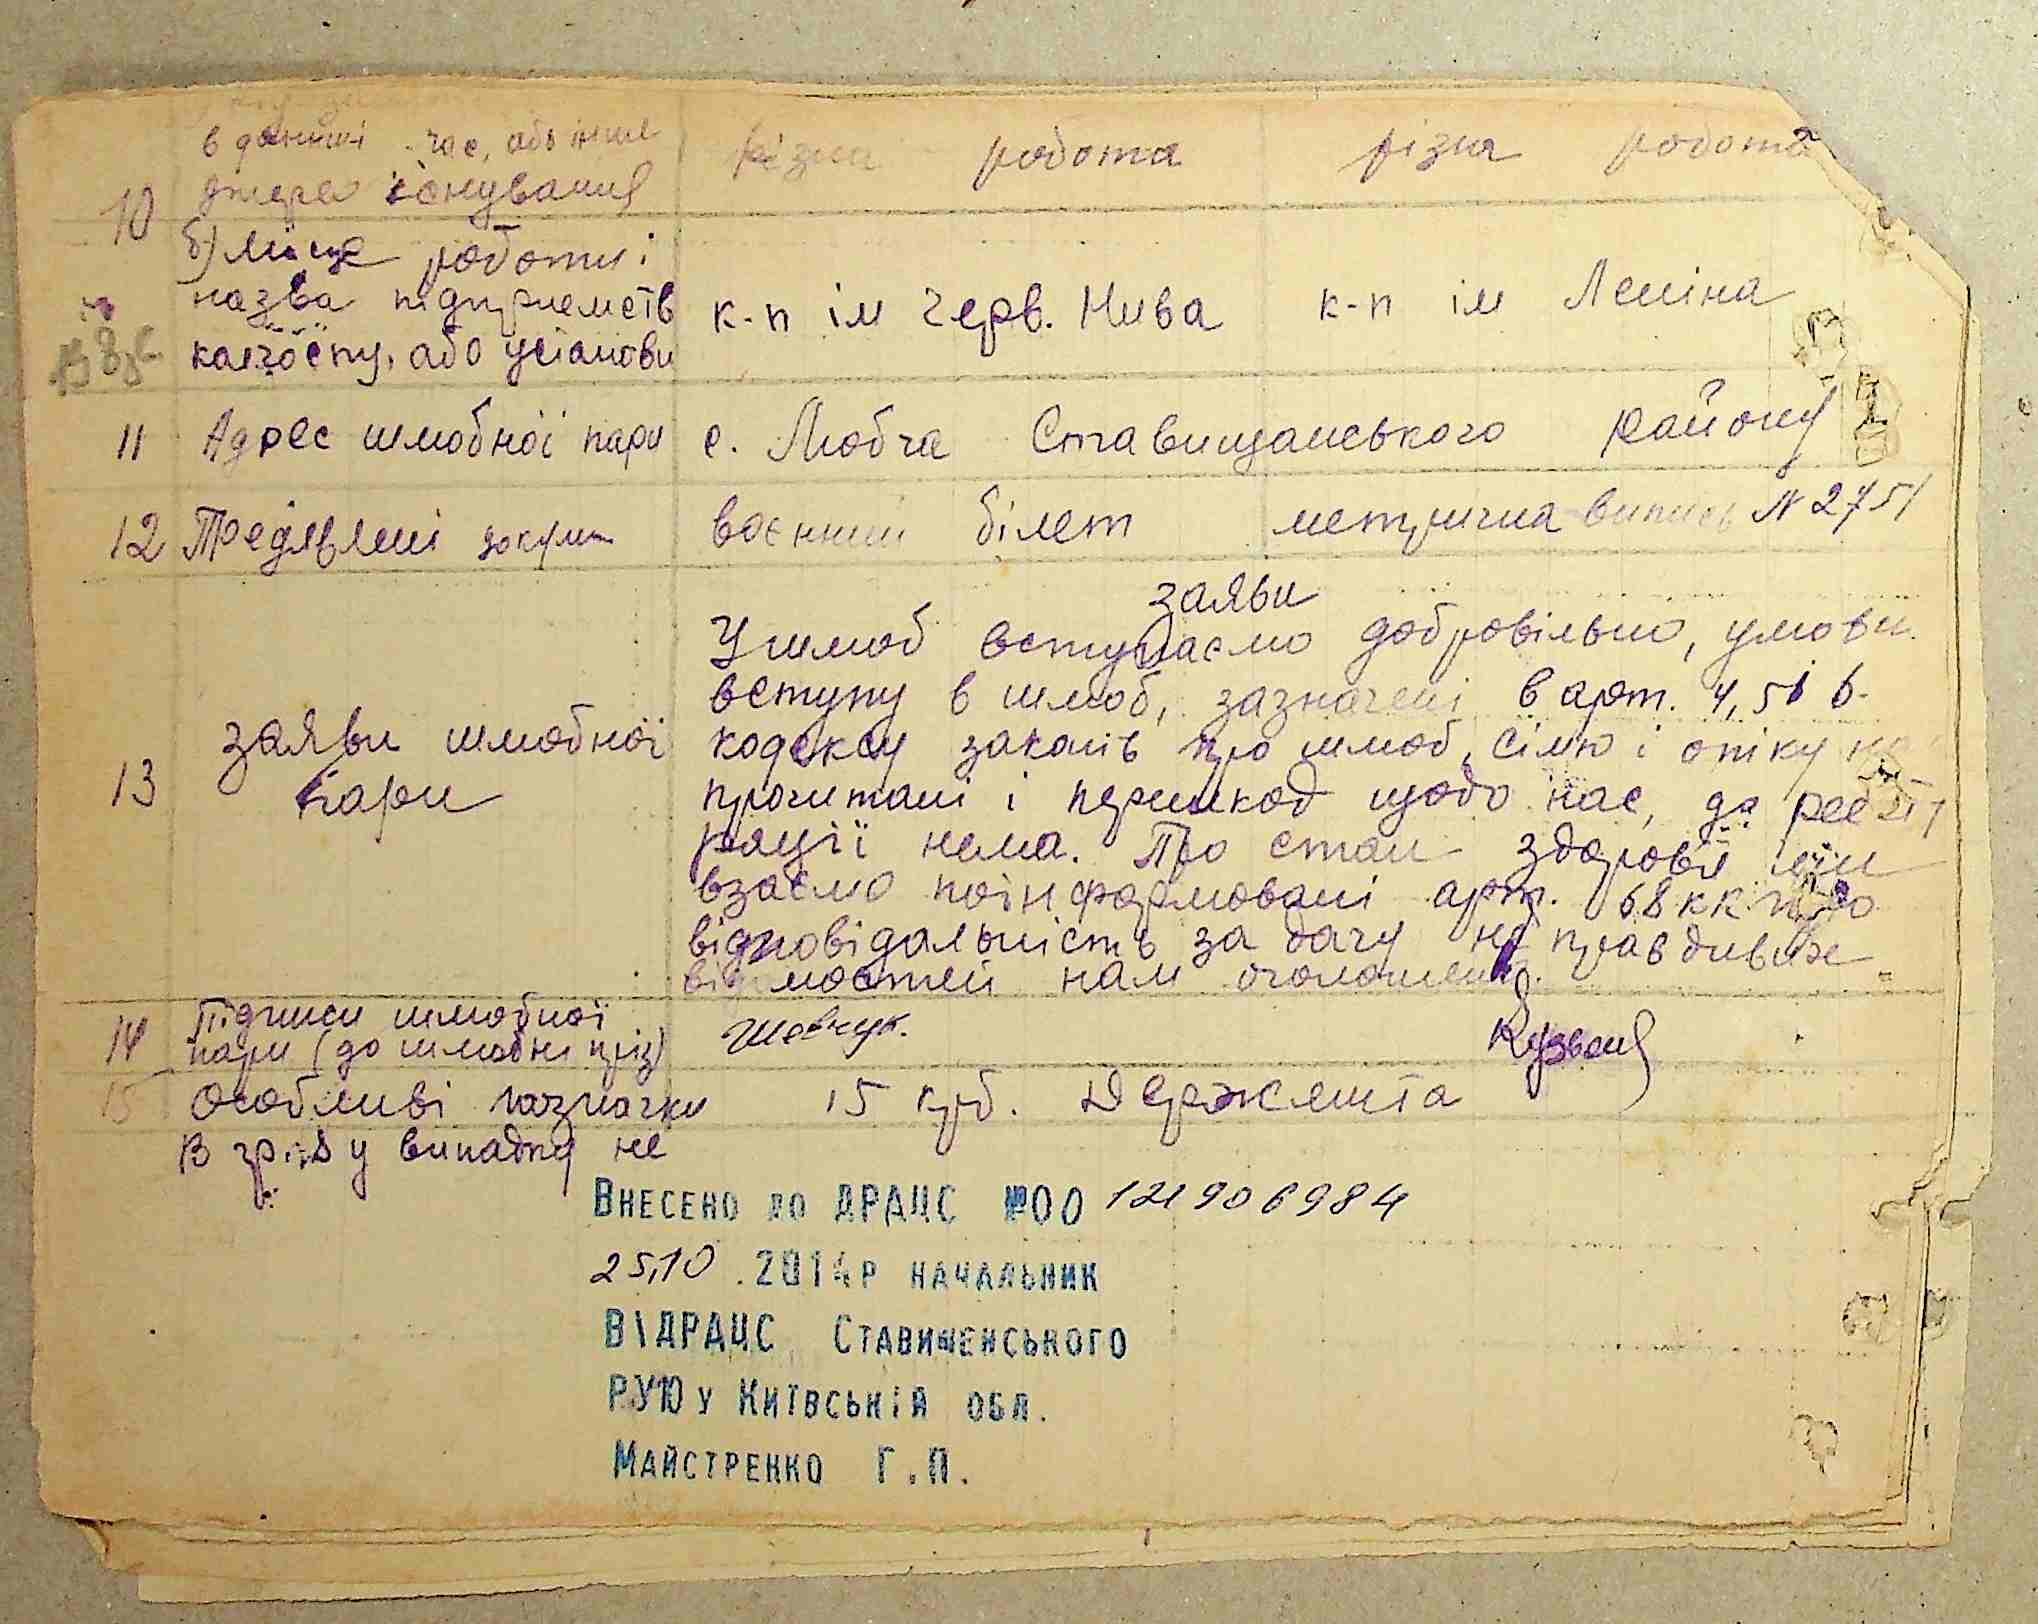 в данний час, або інше
10 джерело існування різна робота різна робота
б) Місце роботи і
назва підприємств к-п ім Черв. Нива к-п ім Леніна
колгоспу, або установи
11 Адрес шлюбної пари с. Любча Ставищанського району
12 Предявлені докум воєнний білет метрична випись № 2751
заяви
У шлюб вступаємо добровільно, умови
вступу в шлюб, зазначені в арт. 4, 5 і 6
13 заяви шлюбної кодексу законів про шлюб, сімю і опіку
пари прочитані і перешкод щодо нас, до реєст
рації нема. Про стан здоровя ми
взаємо поінформовані арт. 68 КК про
відповідальність за дачу не правдивих
відомостей нам оголошено.
14 Підписи шлюбної
пари (до шлюбні пріз) Шевчук. Кузвон
15 Особливі позначки 15 крб. Держмита
В зріз у випадку не
Внесено до ДРАЦС №00 121906984
25,10 .2014р начальник
ВІДРАЦС Ставищенського
РУЮ у Київській обл.
Майстренко Г.П.